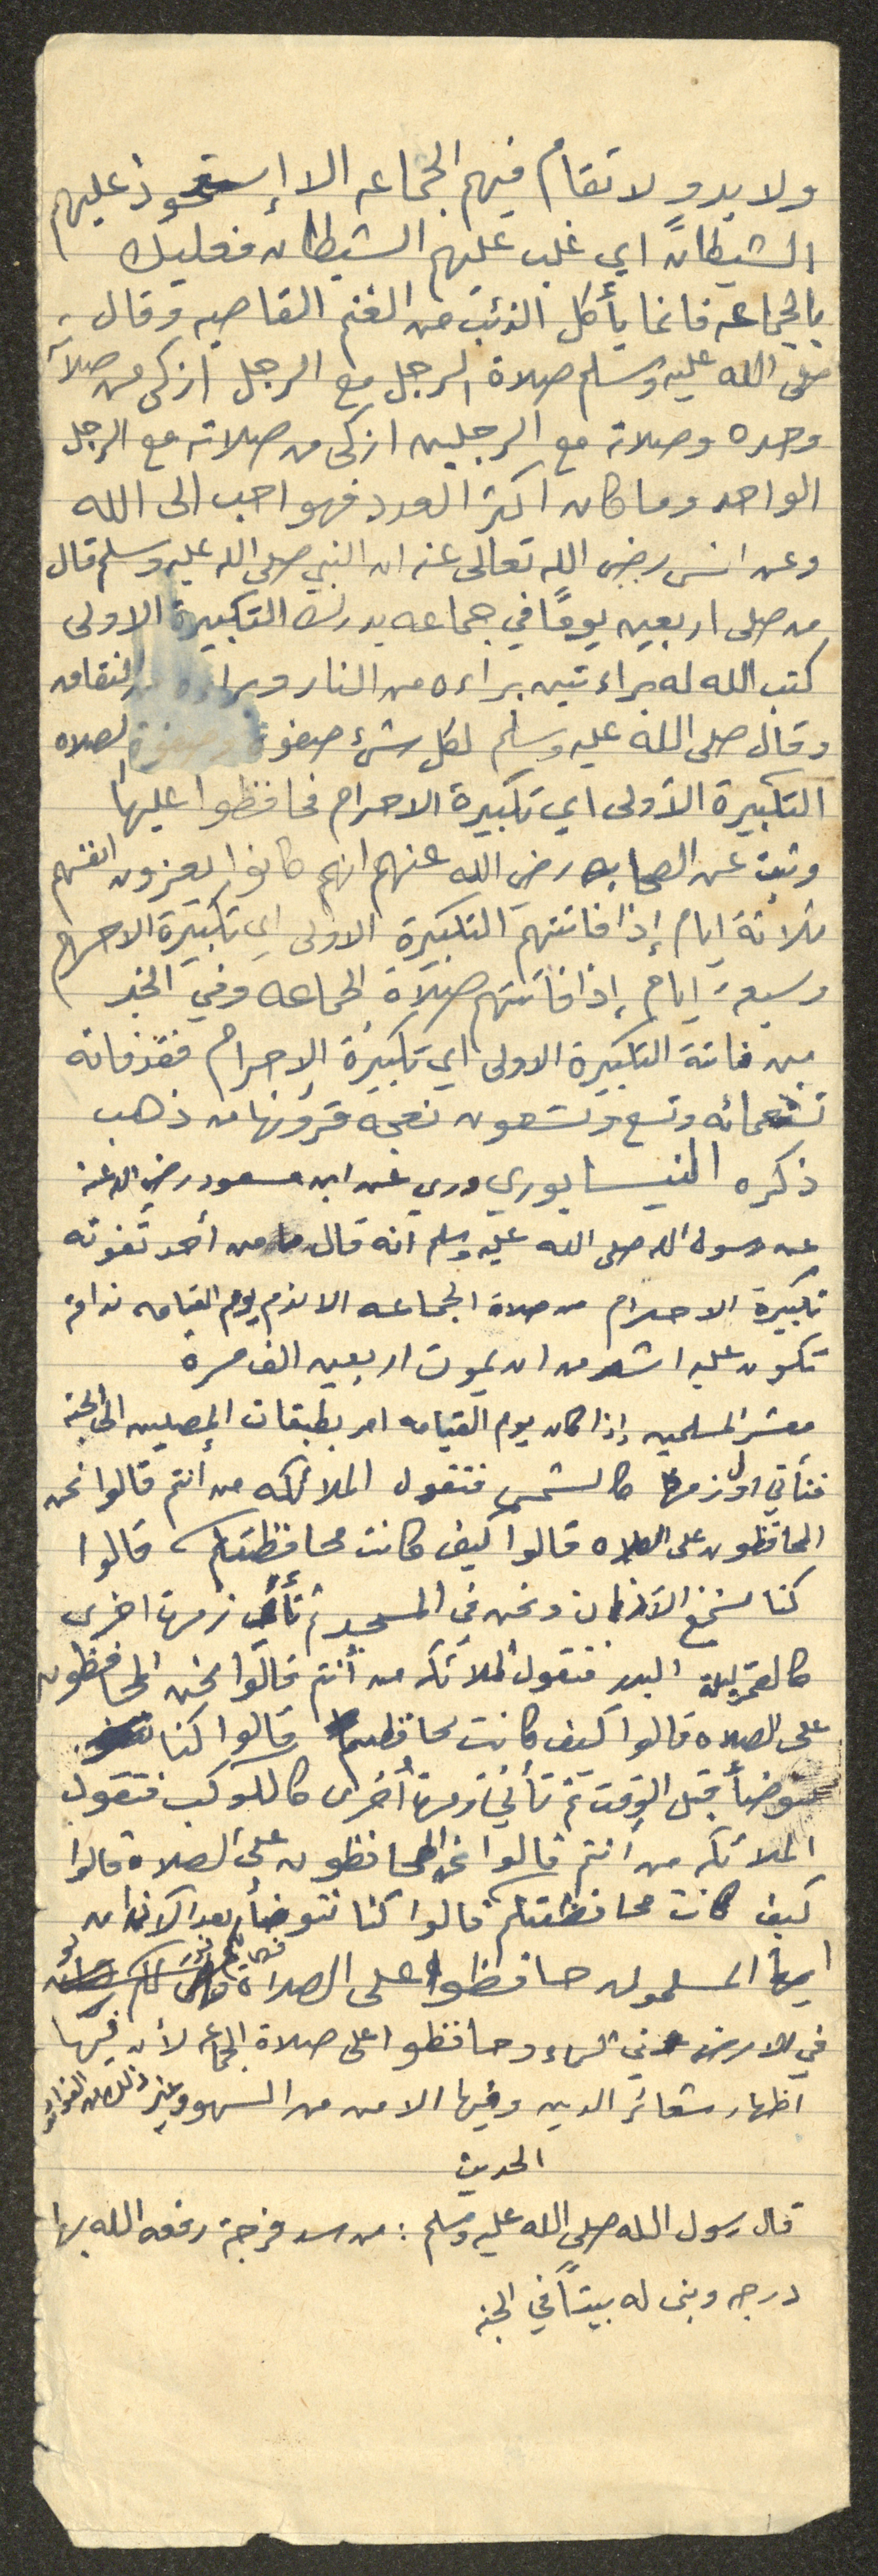 ولا بدو ولا تقام فيهم الجماعه الا إستحوذ عليهم
الشيطانً اي غلب عليهم الشيطان فعليك
بالجماعه فانما يأكل الذئب من الغنم القاصيه وقال
صلى الله عليه وسلم صلاة الرجل مع الرجل ازكى من صلاته
وحده وصلاته مع الرجلين ازكى من صلاته مع الرجل
الواحد وما كان اكثر العدد فهو احب الى الله
وعن انس رضي الله تعالى عنه ان النبي صلى الله عليه وسلم قال
من صلى اربعين يومًا في جماعه يدرك التكبيرة الاولى
كتب الله له براءتين براءه من النار وبراءه من النفاق
وقال صلى الله عليه وسلم لكل شيء صفوة وصفوة الصلاه
التكبيرة الأولى اي تكبيرة الاحرام فحافظوا عليها
وثبت عن الصحابه رضي الله عنهم انهم كانوا يعزون انفسهم
ثلاثة ايام إذا فاتتهم التكبيرة الاولى اي تكبيرة الاحرام
وسبعة ايام إذا فاتتهم صلاة الجماعه وفي الخبر
من فاتته التكبيرة الاولى اي تكبيرة الإحرام فقد فاته
تسعمائه وتسع وتسعون نعجه قرونها من ذهب
ذكره النيسابوري وروي عن ابن مسعود رضي الله عنه
عن رسول الله صلى الله عليه وسلم انه قال ما من أحد تفوته
تكبيرة الاحرام من صلاة الجماعه الا ندم يوم القيامه ندامة
تكون عليه اشد من ان يموت اربعين الف مره
معشر المسلمين إذا كان يوم القيامه امر بطبقات المصلين الى الجنه
فتأتي اول زمرة كالشمس فتقول الملائكه من أنتم قالوا نحن
المحافظون على الصلاه قالوا كيف كانت محافظتكم قالوا
كنا نسمع الآذان ونحن في المسجد ثم تأتي زمرة اخرى
كالقمر ليلة البدر فتقول الملائكه من أنتم قالوا نحن المحافظون
على الصلاه قالوا كيف كانت محافظتكم قالوا كنا
نتوضأ قبل الوقت ثم تأتي زمرة أخرى كالكوكب فتقول
الملائكه من أنتم قالوا نحن المحافظون على الصلاة قالوا
كيف كانت محافظتكم قالوا كنا نتوضأ بعد الاذان
ايها المسلمون حافظوا على الصلاة فهي لكم نور
في الارض وفي السماء وحافظوا على صلاة الجماعه لأن فيها
اظهار شعائر الدين وفيها الامن من السهو وغير ذلك من الفوائد
الحديث
قال رسول الله صلى الله عليه وسلم : من سد فرجة رفعه الله بها
درجه وبنى له بيتًا في الجنه